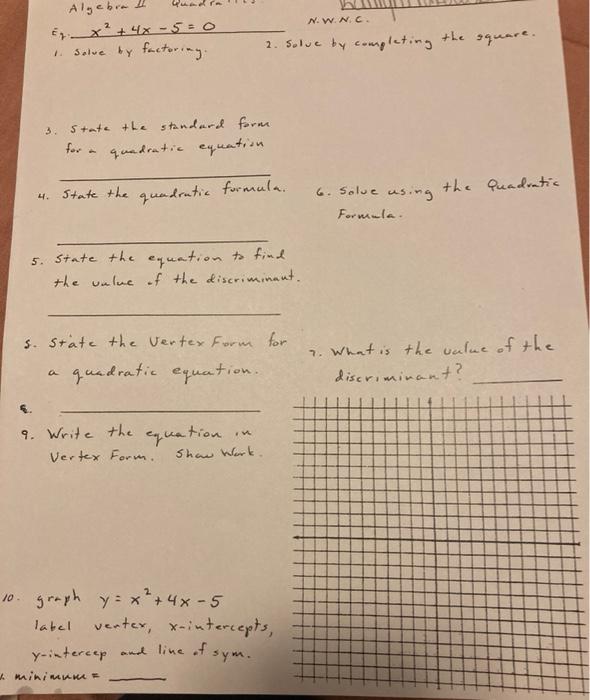 Algebra II
N.W.N.C.
Eq. x² + 4x - 5 = 0
1. Solve by factoring.
2. Solve by completing the square.
3. State the standard form
for a quadratic equation
4. State the quadratic formula.
6. Solve using the Quadratic
Formula.
5. State the equation to find
the value of the discriminant.
S. State the Vertex Form for
a quadratic equation.
7. What is the value of the
discriminant?
8.
9. Write the equation in
Vertex Form. Show Work.
10. graph y = x² + 4x - 5
label vertex, x-intercepts,
y-intercep and line of sym.
. minimum =